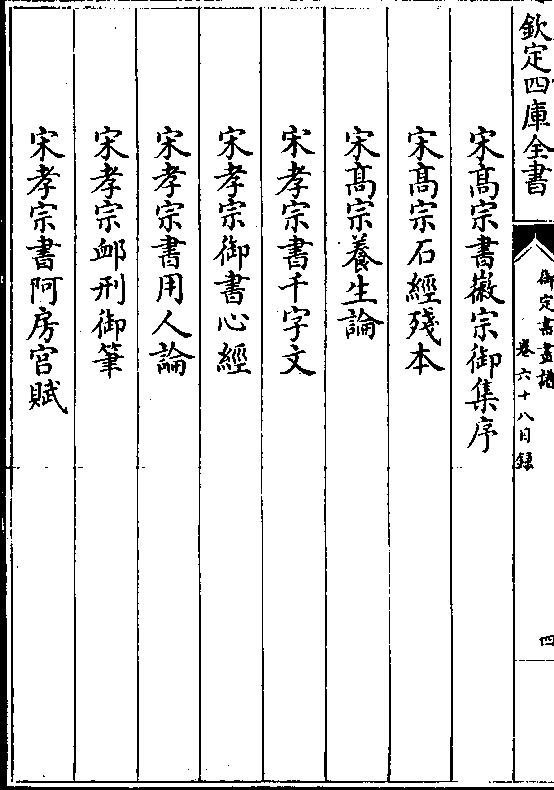 欽定四庫全書
御定書畫譜
卷六十八目錄
四
宋髙宗書徽宗御集序
宋髙宗石經殘本
宋髙宗養生論
宋孝宗書千字文
宋孝宗御書心經
宋孝宗書用人論
宋孝宗衈刑御筆
宋孝宗書阿房宫賦